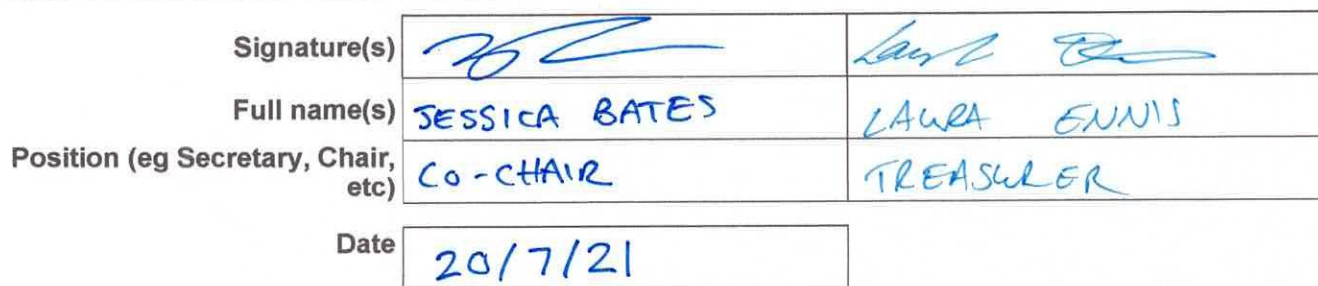 Signature(s)
Full name(s) JESSICA BATES LAURA ENNIS
Position (eg Secretary, Chair, etc) CO-CHAIR TREASURER
Date 20/7/21